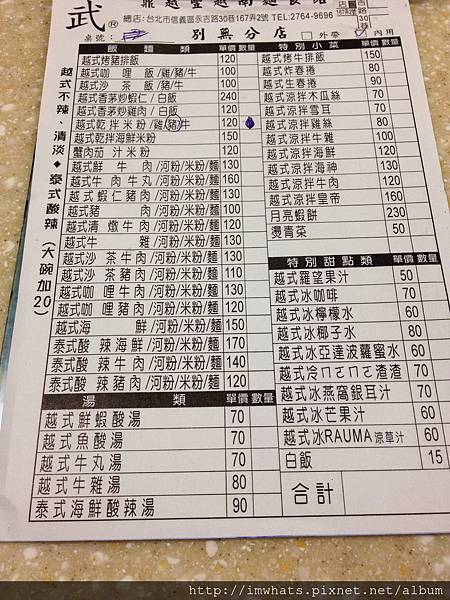 武®
總店:台北市信義區永吉路30巷167弄2號 TEL:2764-9696
別無分店
桌號:
外帶
內用
越式不辣、清淡◆泰式酸辣(大碗加20)
飯麵類 單價 數量
越式烤豬排飯 120
越式咖哩飯/雞/豬/牛 100
越式沙茶飯/豬/牛 100
越式香茅炒蝦仁/白飯 240
越式香茅炒雞肉/白飯 120
越式乾拌米粉/雞/豬/牛 120
越式乾拌海鮮米粉 150
蟹肉茄汁米粉 120
越式鮮牛肉/河粉/米粉/麵 130
越式牛肉牛丸/河粉/米粉/麵 160
越式蝦仁豬肉/河粉/米粉/麵 130
越式豬肉/河粉/米粉/麵 100
越式清燉牛肉/河粉/米粉/麵 120
越式牛雜/河粉/米粉/麵 130
越式沙茶牛肉/河粉/米粉/麵 130
越式沙茶豬肉/河粉/米粉/麵 110
越式咖哩牛肉/河粉/米粉/麵 130
越式咖哩豬肉/河粉/米粉/麵 120
越式海鮮/河粉/米粉/麵 150
泰式酸辣海鮮/河粉/米粉/麵 170
泰式酸辣牛肉/河粉/米粉/麵 140
泰式酸辣豬肉/河粉/米粉/麵 120
湯類 單價 數量
越式鮮蝦酸湯 70
越式魚酸湯 70
越式牛丸湯 70
越式牛雜湯 80
泰式海鮮酸辣湯 90
特別小菜 單價 數量
越式烤牛排飯 100
越式炸春捲 80
越式生春捲 90
越式涼拌木瓜絲 70
越式涼拌雪耳 70
越式涼拌雞絲 80
越式涼拌牛雜 100
越式涼拌海鮮 120
越式涼拌海神 130
越式涼拌牛肉 120
越式涼拌皇帝 160
月亮蝦餅 230
燙青菜 50
特別甜點類 單價 數量
越式羅望果汁 50
越式冰咖啡 70
越式冰檸檬水 60
越式冰椰子水 80
越式冰亞達波蘿蜜水 60
越式冷ㄇㄛㄇㄛ渣渣 70
越式冰燕窩銀耳汁 70
越式冰芒果汁 60
越式冰RAUMA涼草汁 60
白飯 15
合計
http://imwhats.pixnet.net/album